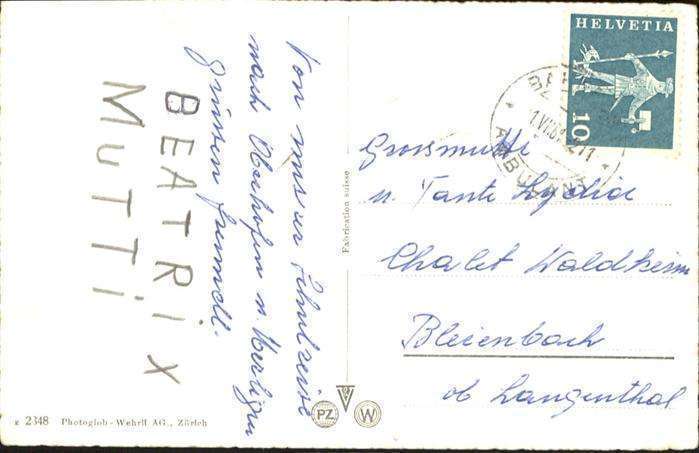 Von unserer Schulreise
nach Oberhofen u Merligen
Grüssen
BEATRiX
MUTTi
Fabrication suisse
HELVETIA
10
AMBULANT
Grossmutti
u. Tante Lydia
Chalet Waldheim
Bleienbach
ob Langenthal
PZ
W
R 2348 Photoglob-Wehrli AG., Zürich